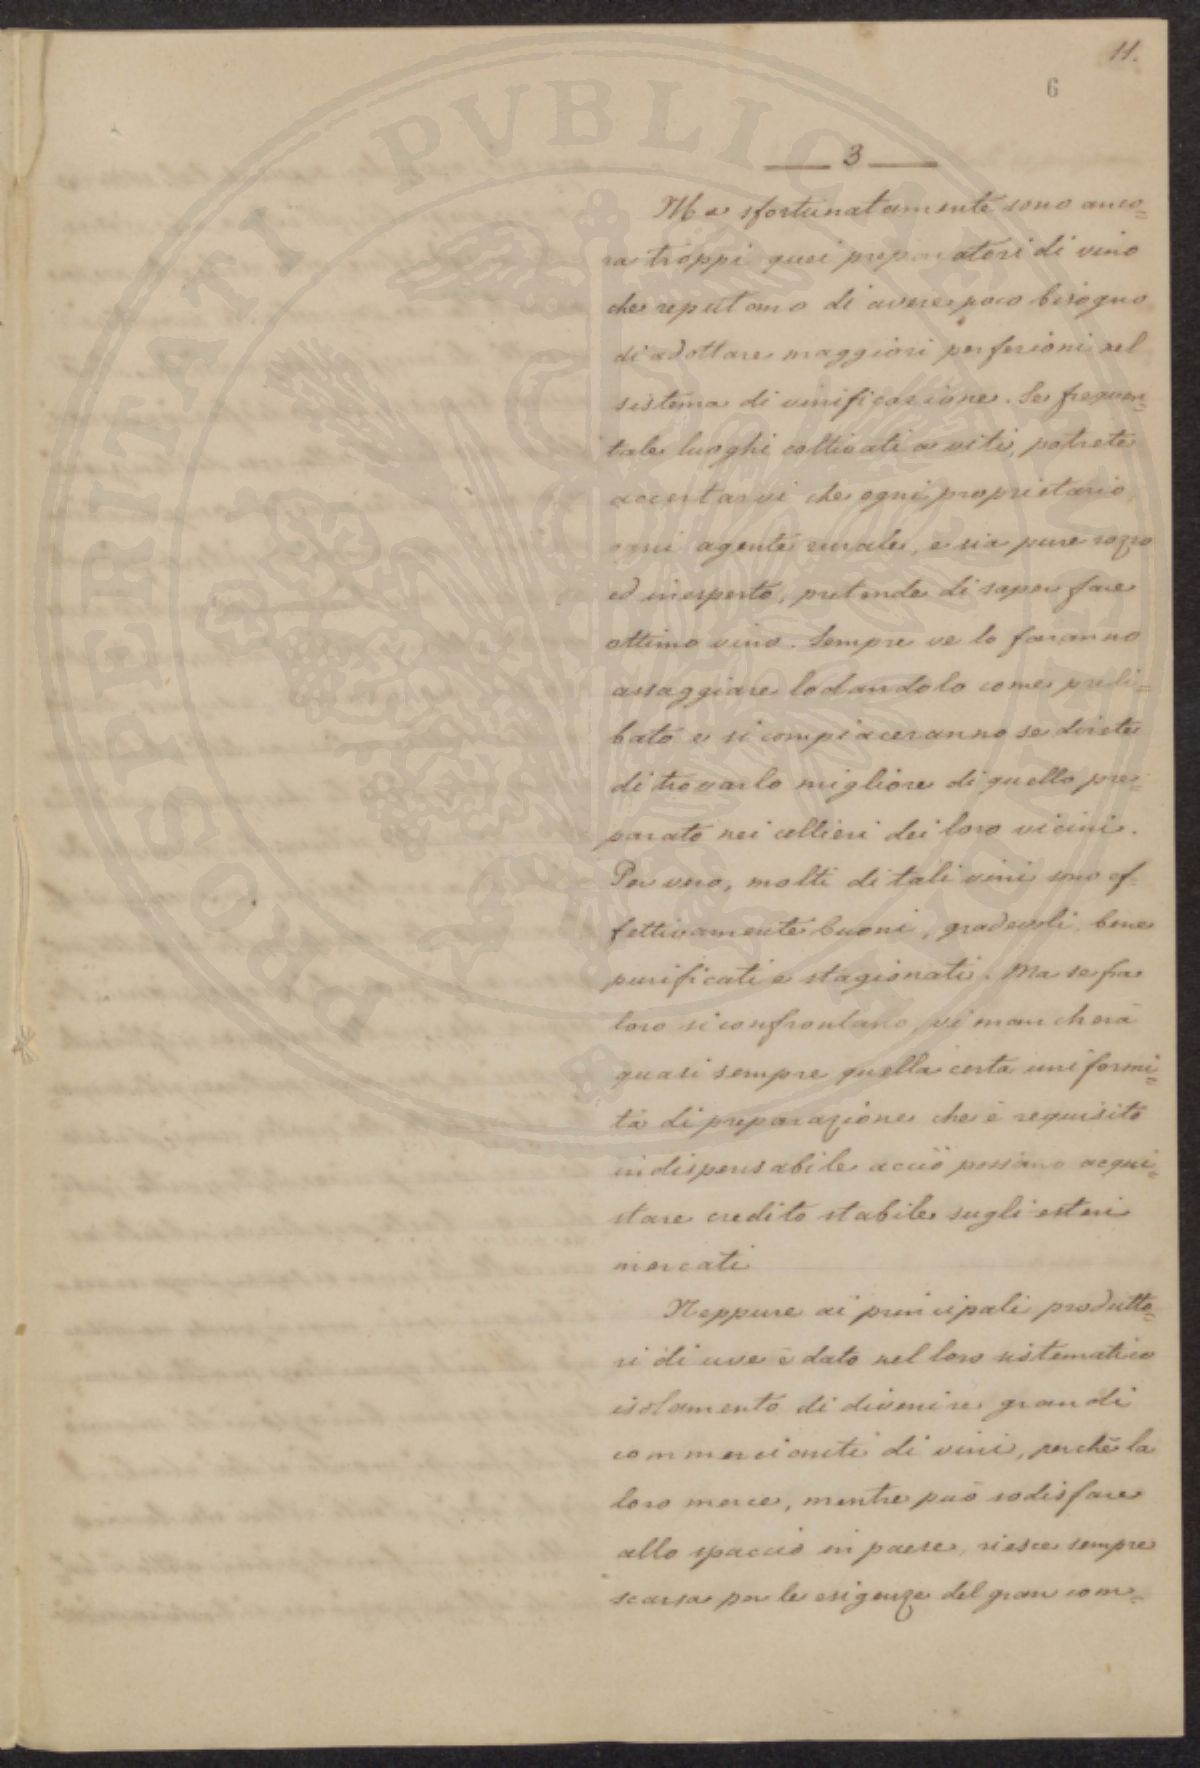 11.
6
3
Ma sfortunatamente sono anco=
ra troppi quei preparatori di vino
che reputano di avere poco bisogno
di adottare maggiori perfezioni nel
sistema di vinificazione. Se frequen=
tate luoghi coltivati a viti, potrete
accertarvi che ogni proprietario,
ogni agente rurale, e sia pure rozzo
ed inesperto, pretende di saper fare
ottimo vino. Sempre ve lo faranno
assaggiare lodandolo come preli=
bato e si compiaceranno se direte
di trovarlo migliore di quello pre=
parato nei cellieri dei loro vicini.
Per vero, molti di tali vini sono ef=
fettivamente buoni, gradevoli, bene
purificati e stagionati. Ma se fra
loro si confrontano, vi mancherà
quasi sempre quella certa uniformi=
tà di preparazione che è requisito
indispensabile acciò possano acqui=
stare credito stabile sugli esteri
mercati
Neppure ai principali produtto=
ri di uve è dato nel loro sistematico
isolamento di divenire grandi
commercianti di vini, perchè la
loro merce, mentre può sodisfare
allo spaccio in paese, riesce sempre
scarsa per le esigenze del gran com=
PROSPERITATI PVBLICAE